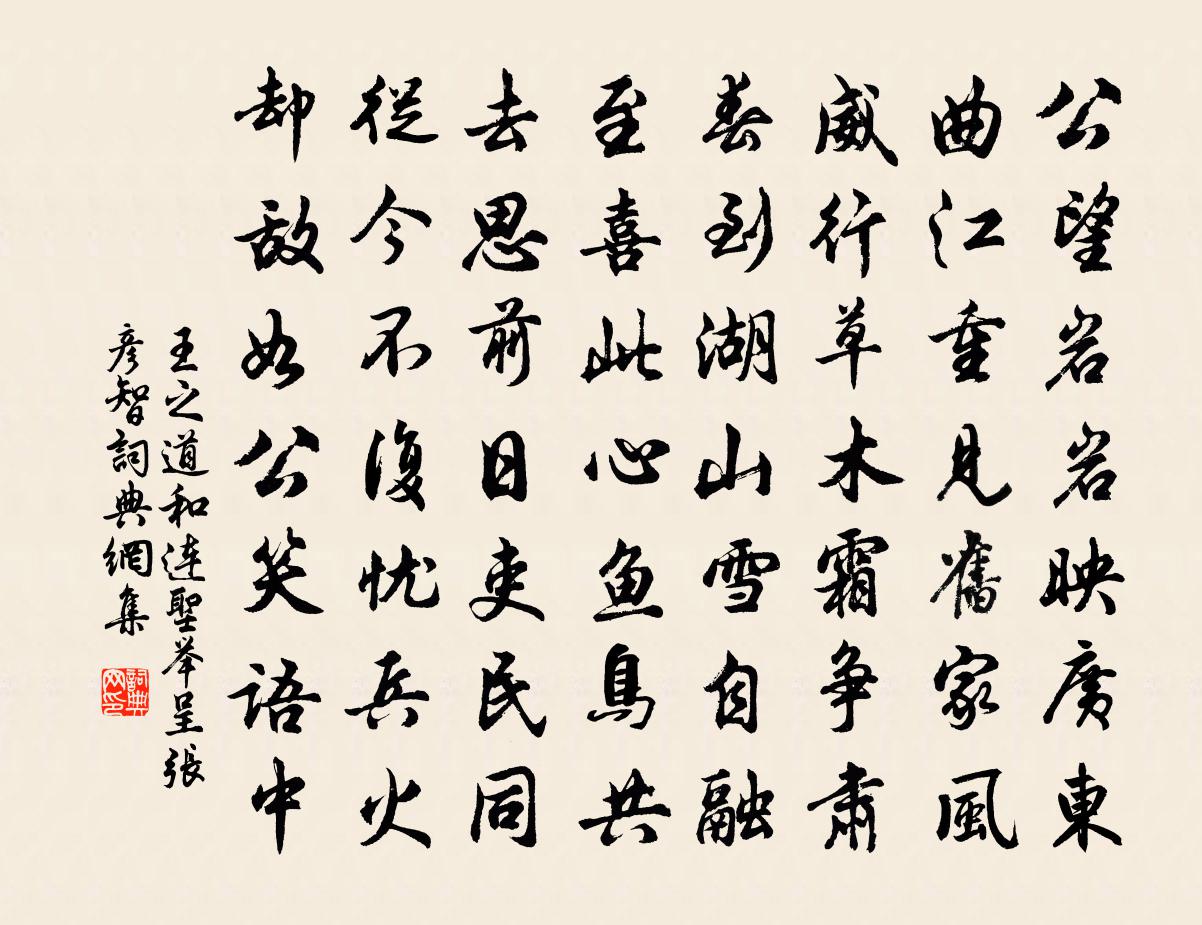 公望岩岩映广東
曲江重見舊家風
威行草木霜争肅
春到湖山雪自融
至喜此心鱼鳥共
去思前日吏民同
從今不復忧兵火
却敌如公笑語中
王之道和连聖举呈張
彦智詞典網集
詞典网印